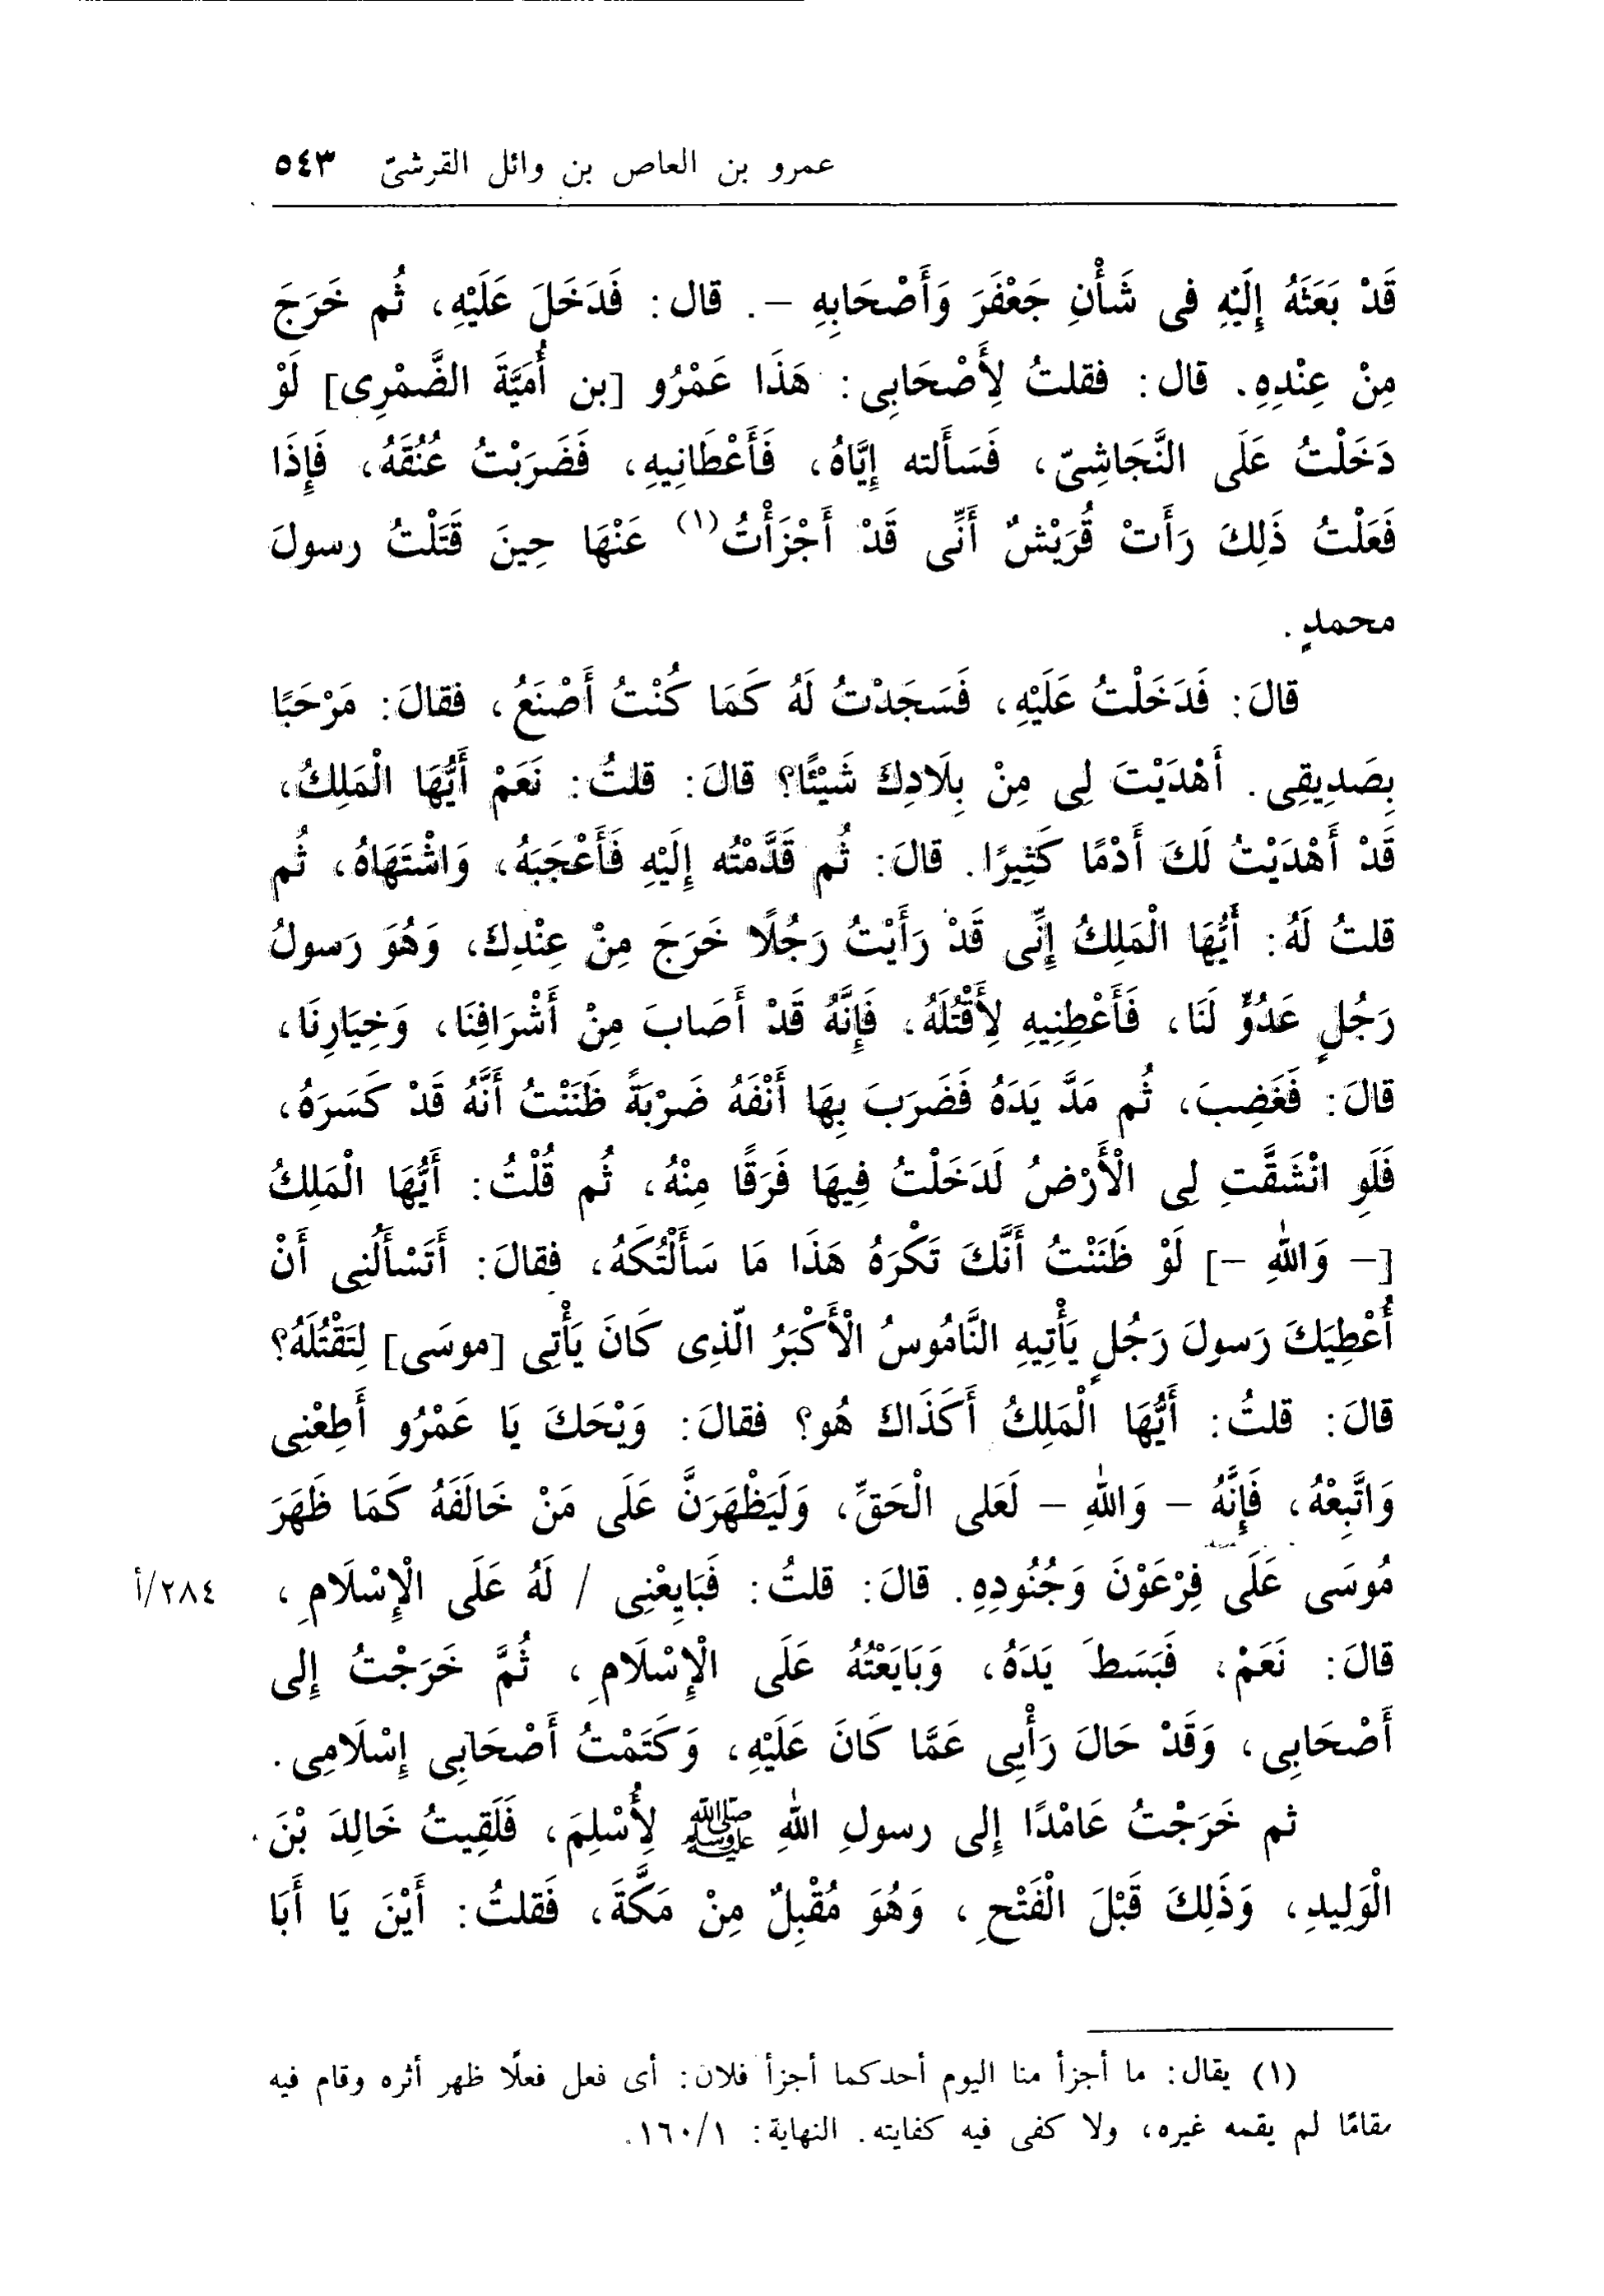 عمرو بن العاص بن وائل القرشىّ ٥٤٣
قَدْ بَعَثَهُ إِلَيْهِ فى شَأْنِ جَعْفَرَ وَأَصْحَابِهِ –. قال: فَدَخَلَ عَلَيْهِ، ثُم خَرَجَ
مِنْ عِنْدِهِ. قال: فقلتُ لِأَصْحَابِى: هَذَا عَمْرُو [بن أُمَيَّةَ الضَّمْرِى] لَوْ
دَخَلْتُ عَلَى النَّجَاشِىّ، فَسَأَلته إِيَّاهُ، فَأَعْطَانِيهِ، فَضَرَبْتُ عُنُقَهُ، فَإِذَا
فَعَلْتُ ذَلِكَ رَأَتْ قُرَيْشٌ أَنِّى قَدْ أَجْزَأْتُ(١) عَنْهَا حِينَ قَتَلْتُ رسولَ
محمدٍ.
قالَ: فَدَخَلْتُ عَلَيْهِ، فَسَجَدْتُ لَهُ كَمَا كُنْتُ أَصْنَعُ، فقالَ: مَرْحَبًا
بِصَدِيقِى. أَهْدَيْتَ لِى مِنْ بِلَادِكَ شَيْئًا؟ قالَ: قلتُ: نَعَمْ أَيُّهَا الْمَلِكُ،
قَدْ أَهْدَيْتُ لَكَ أَدْمًا كَثِيرًا. قالَ: ثُم قَدَّمْتُه إِلَيْهِ فَأَعْجَبَهُ، وَاشْتَهَاهُ، ثُم
قلتُ لَهُ: أَيُّهَا الْمَلِكُ إِنِّى قَدْ رَأَيْتُ رَجُلًا خَرَجَ مِنْ عِنْدِكَ، وَهُوَ رَسولُ
رَجُلٍ عَدُوٍّ لَنَا، فَأَعْطِنِيهِ لِأَقْتُلَهُ، فَإِنَّهُ قَدْ أَصَابَ مِنْ أَشْرَافِنَا، وَخِيَارِنَا،
قالَ: فَغَضِبَ، ثُم مَدَّ يَدَهُ فَضَرَبَ بِهَا أَنْفَهُ ضَرْبَةً ظَنَنْتُ أَنَّهُ قَدْ كَسَرَهُ،
فَلَوِ انْشَقَّتِ لِى الْأَرْضُ لَدَخَلْتُ فِيهَا فَرَقًا مِنْهُ، ثُم قُلْتُ: أَيُّهَا الْمَلِكُ
[– وَاللهِ –] لَوْ ظَنَنْتُ أَنَّكَ تَكْرَهُ هَذَا مَا سَأَلْتُكَهُ، فقالَ: أَتَسْأَلُنِى أَنْ
أُعْطِيَكَ رَسولَ رَجُلٍ يَأْتِيهِ النَّامُوسُ الْأَكْبَرُ الّذِى كَانَ يَأْتِى [موسَى] لِتَقْتُلَهُ؟
قالَ: قلتُ: أَيُّهَا الْمَلِكُ أَكَذَاكَ هُو؟ فقالَ: وَيْحَكَ يَا عَمْرُو أَطِعْنِى
وَاتَّبِعْهُ، فَإِنَّهُ – وَاللهِ – لَعَلى الْحَقِّ، وَلَيَظْهَرَنَّ عَلَى مَنْ خَالَفَهُ كَمَا ظَهَرَ
مُوسَى عَلَى فِرْعَوْنَ وَجُنُودِهِ. قالَ: قلتُ: فَبَايِعْنِى / لَهُ عَلَى الْإِسْلَامِ، ٢٨٤/أ
قالَ: نَعَمْ، فَبَسَطَ يَدَهُ، وَبَايَعْتُهُ عَلَى الْإِسْلَامِ، ثُمَّ خَرَجْتُ إِلى
أَصْحَابِى، وَقَدْ حَالَ رَأْيِى عَمَّا كَانَ عَلَيْهِ، وَكَتَمْتُ أَصْحَابِى إِسْلَامِى.
ثم خَرَجْتُ عَامْدًا إِلى رسولِ اللهِ ﷺ لِأُسْلِمَ، فَلَقِيتُ خَالِدَ بْنَ
الْوَلِيدِ، وَذَلِكَ قَبْلَ الْفَتْحِ، وَهُوَ مُقْبِلٌ مِنْ مَكَّةَ، فَقلتُ: أَيْنَ يَا أَبَا
(١) يقال: ما أجزأ منا اليوم أحدكما أجزأ فلان: أى فعل فعلًا ظهر أثره وقام فيه
مقامًا لم يقمه غيره، ولا كفى فيه كفايته. النهاية: ١/١٦٠.